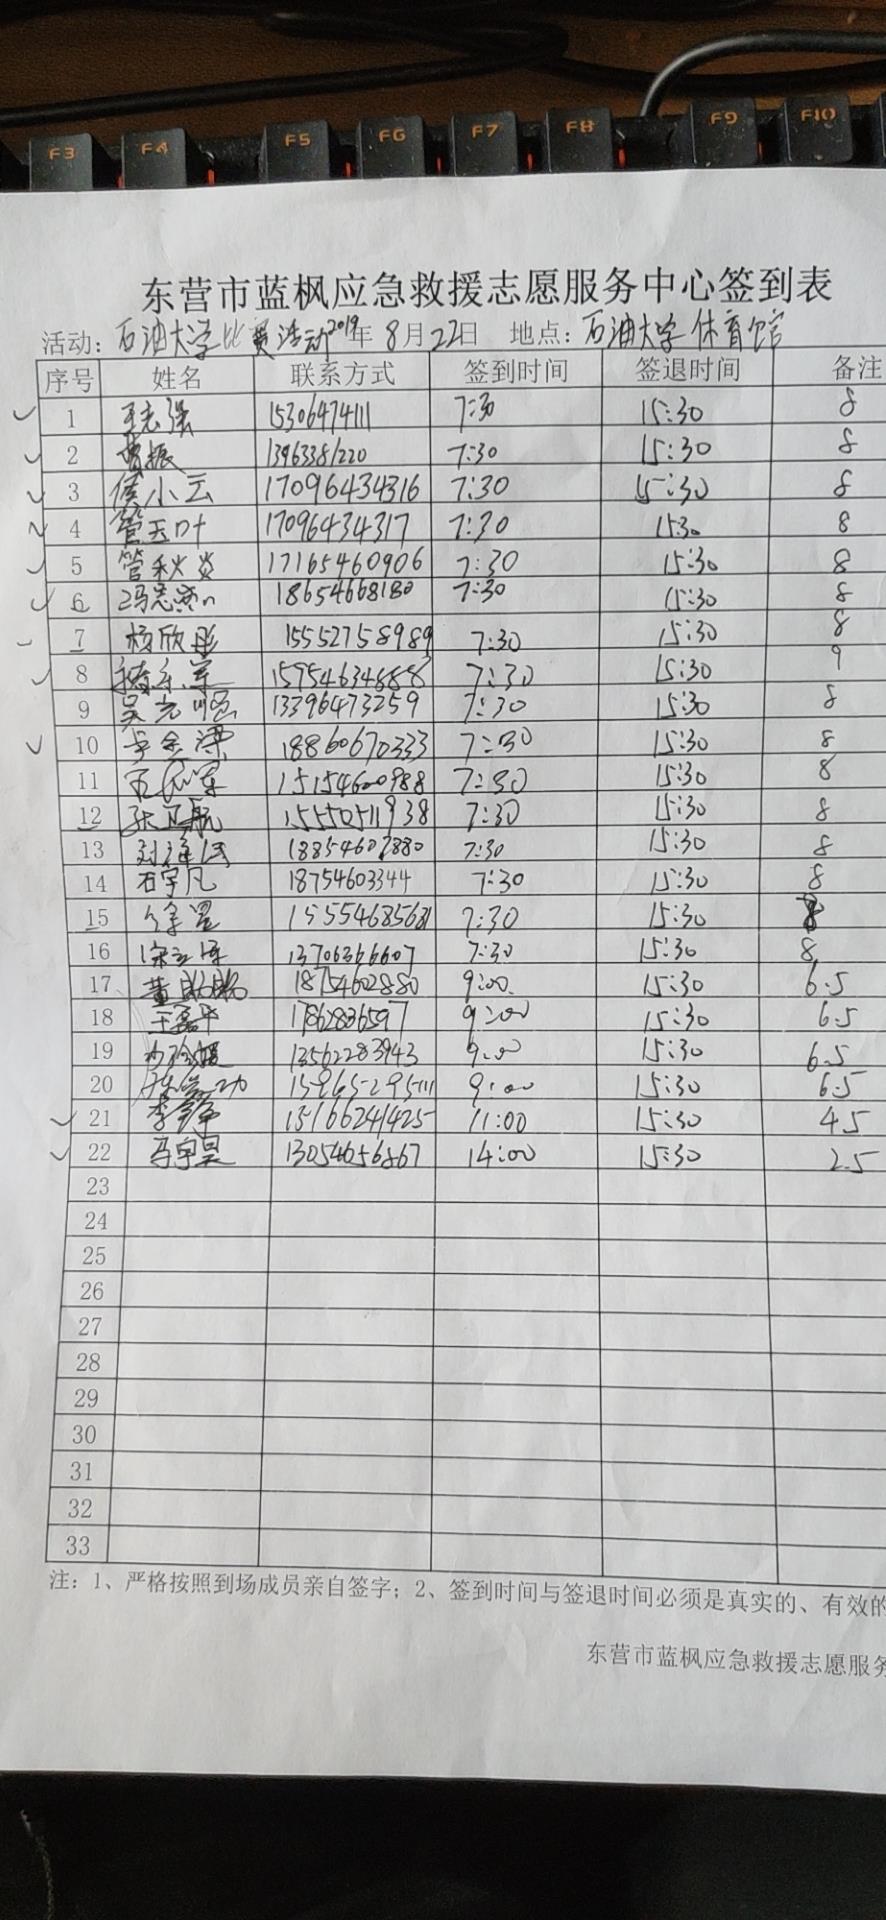 F3 F4 F5 F6 F7 F8 F9 F10
东营市蓝枫应急救援志愿服务中心签到表
活动：石油大学比赛活动 2019年8月22日 地点：石油大学体育馆
序号 姓名 联系方式 签到时间 签退时间 备注
1 王志强 15306474111 7:30 15:30 8
2 曹振 13963381220 7:30 15:30 8
3 侯小云 17096434316 7:30 15:30 8
4 管玉叶 17096434317 7:30 15:30 8
5 管秋炎 17165460906 7:30 15:30 8
6 18654668180 7:30 15:30 8
7 杨欣彤 15552758989 7:30 15:30 8
8 15754634688 7:30 15:30 9
9 13396473259 7:30 15:30 8
10 18860670333 7:30 15:30 8
11 15154600988 7:30 15:30 8
12 张卫航 15550511938 7:30 15:30 8
13 7:30 15:30 8
14 石宇凡 18754603344 7:30 15:30 8
15 15554685681 7:30 15:30 8
16 13706366607 7:30 15:30 8
17 董 18754602880 9:00 15:30 6.5
18 王磊华 17862836597 9:00 15:30 6.5
19 13562283943 9:00 15:30 6.5
20 15965295111 9:00 15:30 6.5
21 15166241425 11:00 15:30 4.5
22 马宇昊 13054656867 14:00 15:30 2.5
23
24
25
26
27
28
29
30
31
32
33
注：1、严格按照到场成员亲自签字；2、签到时间与签退时间必须是真实的、有效的
东营市蓝枫应急救援志愿服务